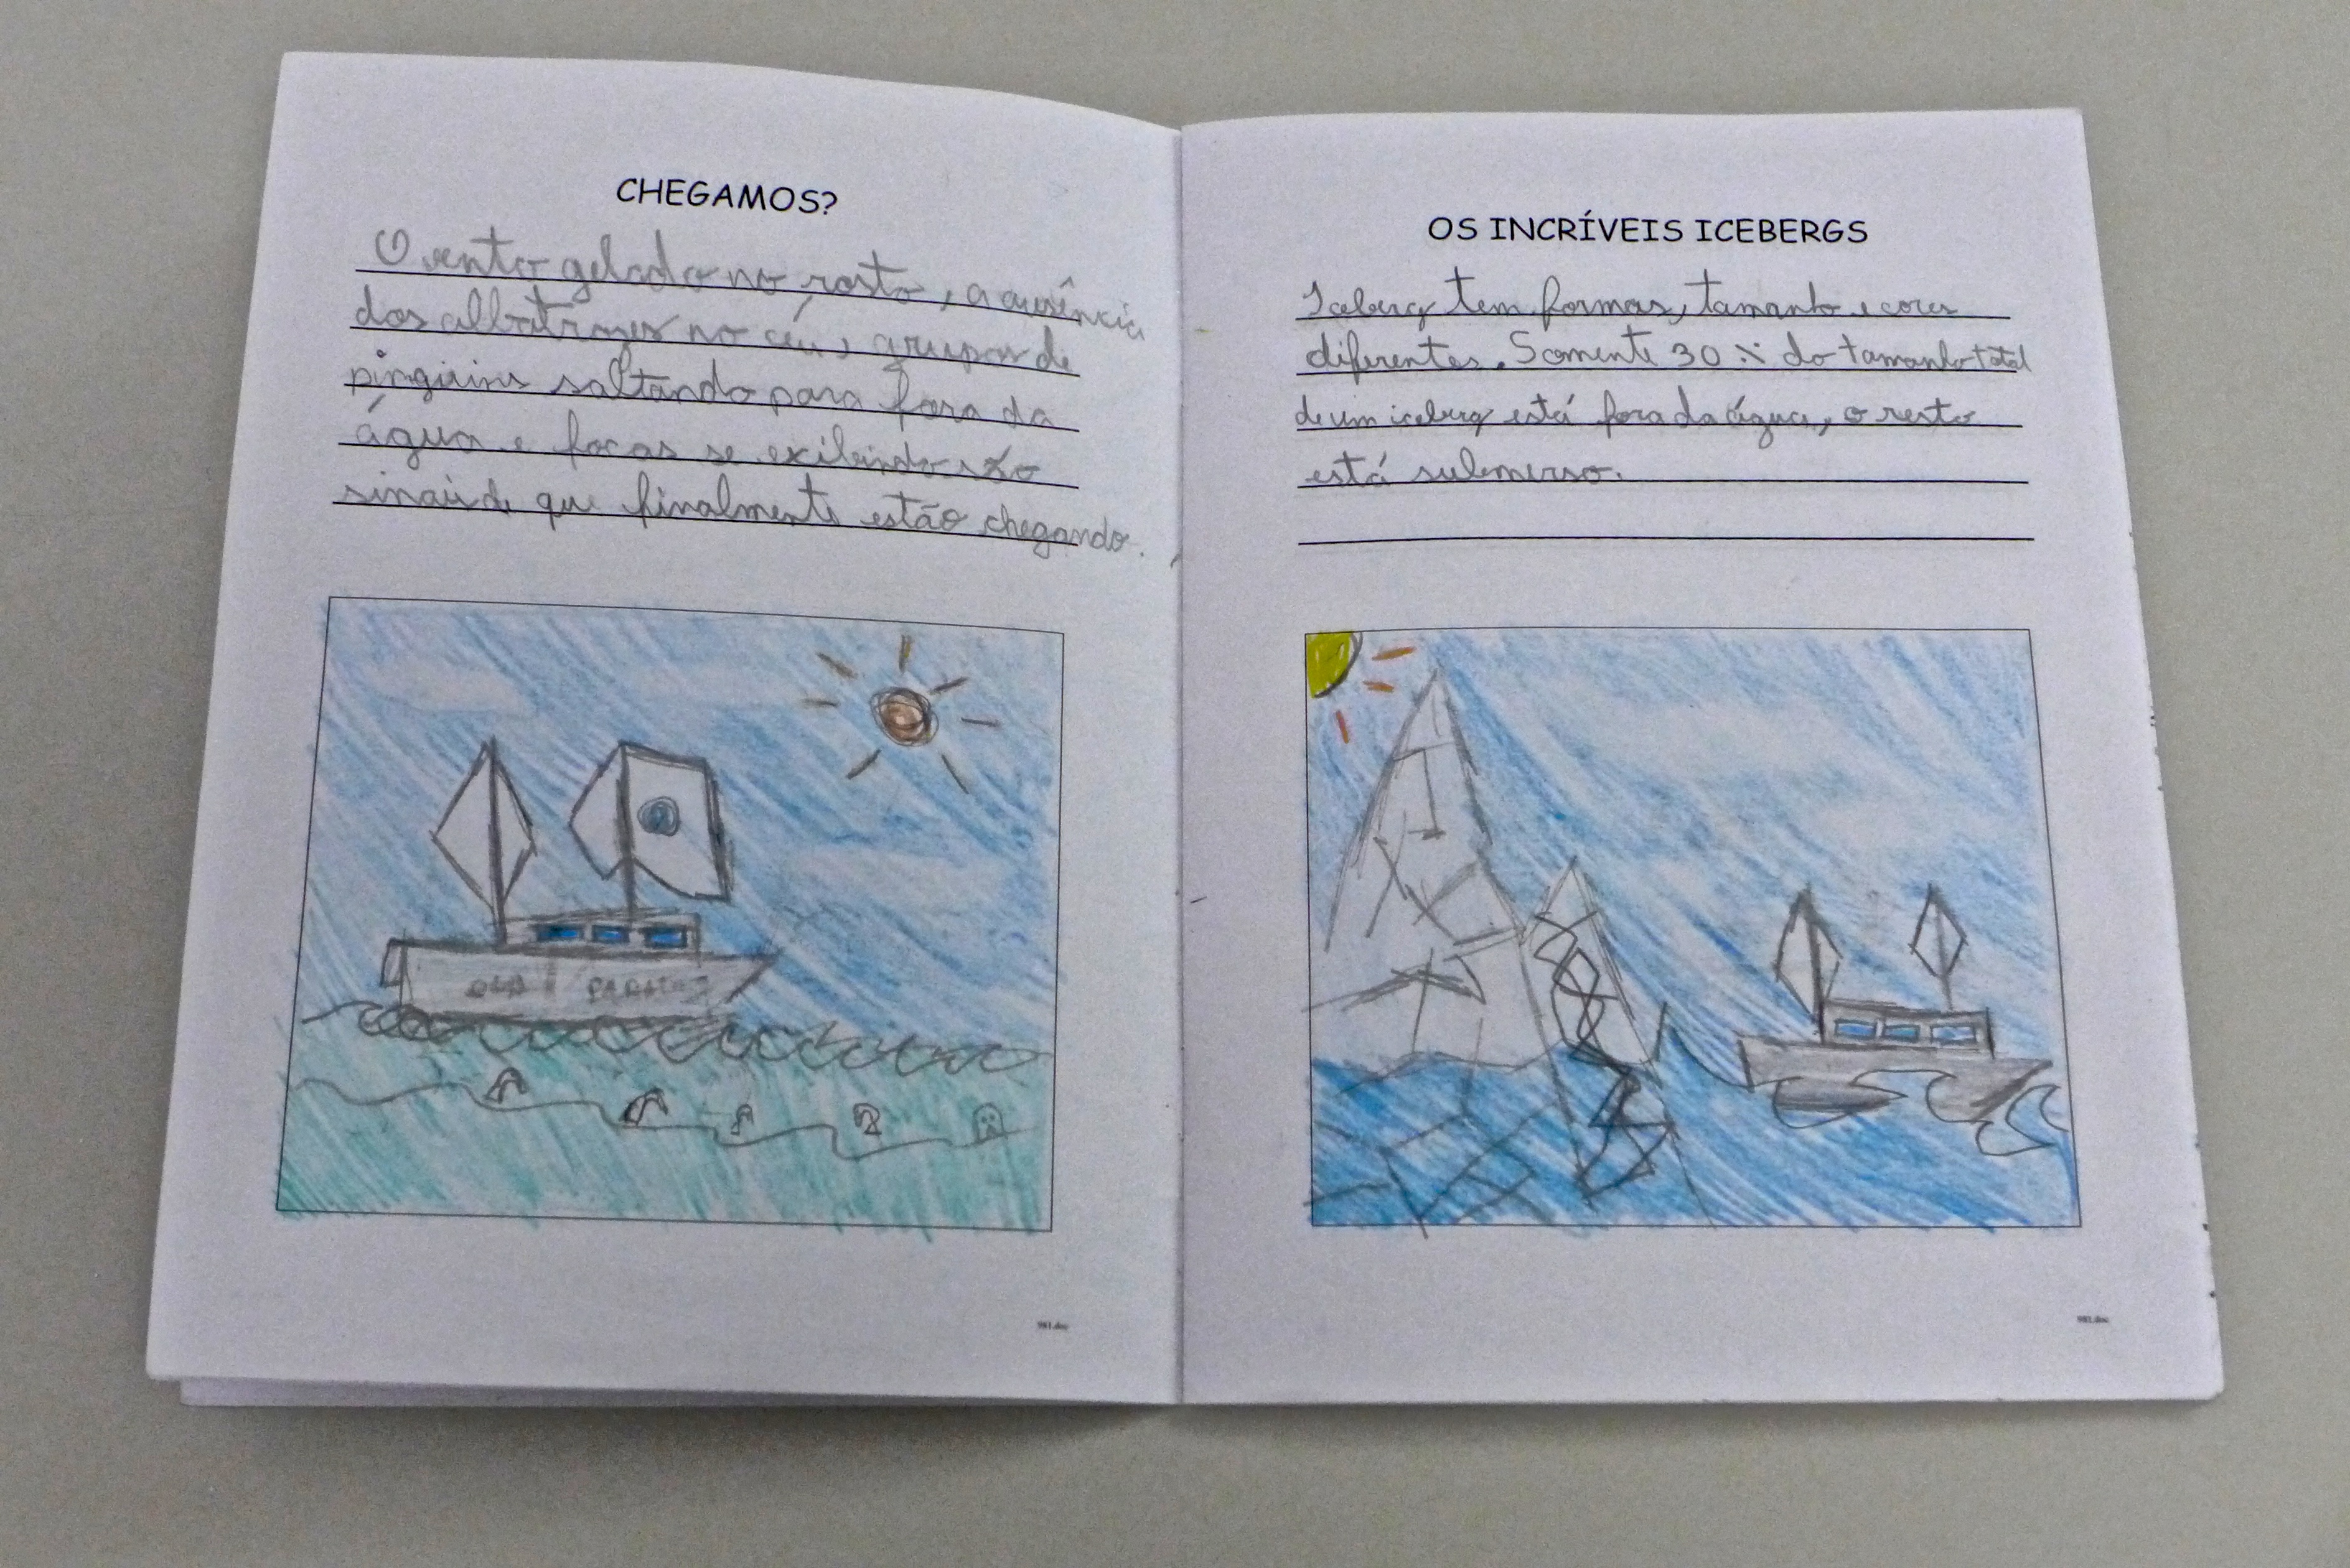 CHEGAMOS?
O vento gelado no rosto, a ausência
dos albatrozes no céu, grupos de
pinguins saltando para fora da
água e focas se exibindo são
sinais de que finalmente estão chegando.
OS INCRÍVEIS ICEBERGS
Iceberg tem formas, tamanho e cores
diferentes. Somente 30 % do tamanho total
de um iceberg está fora da água, o resto
está submerso.
981.doc